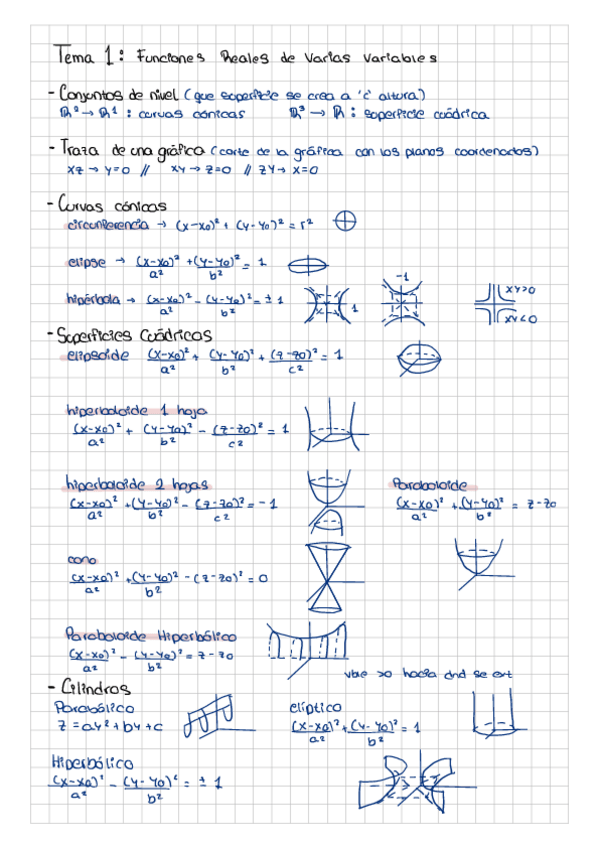 Tema 1: Funciones Reales de Varias Variables
- Conjuntos de nivel (que superficie se crea a 'c' altura)
ℝ² → ℝ¹ : curvas cónicas ℝ³ → ℝ : superficie cuádrica
- Traza de una gráfica (corte de la gráfica con los planos coordenados)
xz → y=0 // xy → z=0 // zy → x=0
- Curvas cónicas
circunferencia → (x-x0)² + (y-y0)² = r²
elipse → (x-x0)²/a² + (y-y0)²/b² = 1
-1
hipérbola → (x-x0)²/a² - (y-y0)²/b² = ± 1
1
xy>0
xy<0
- Superficies Cuádricas
elipsoide (x-x0)²/a² + (y-y0)²/b² + (z-z0)²/c² = 1
hiperboloide 1 hoja
(x-x0)²/a² + (y-y0)²/b² - (z-z0)²/c² = 1
hiperboloide 2 hojas
(x-x0)²/a² + (y-y0)²/b² - (z-z0)²/c² = -1
Paraboloide
(x-x0)²/a² + (y-y0)²/b² = z-z0
cono
(x-x0)²/a² + (y-y0)²/b² - (z-z0)² = 0
Paraboloide Hiperbólico
(x-x0)²/a² - (y-y0)²/b² = z-z0
vble >0 hacia dnd se ext
- Cilindros
Parabólico
z = ay² + by + c
elíptico
(x-x0)²/a² + (y-y0)²/b² = 1
Hiperbólico
(x-x0)²/a² - (y-y0)²/b² = ± 1